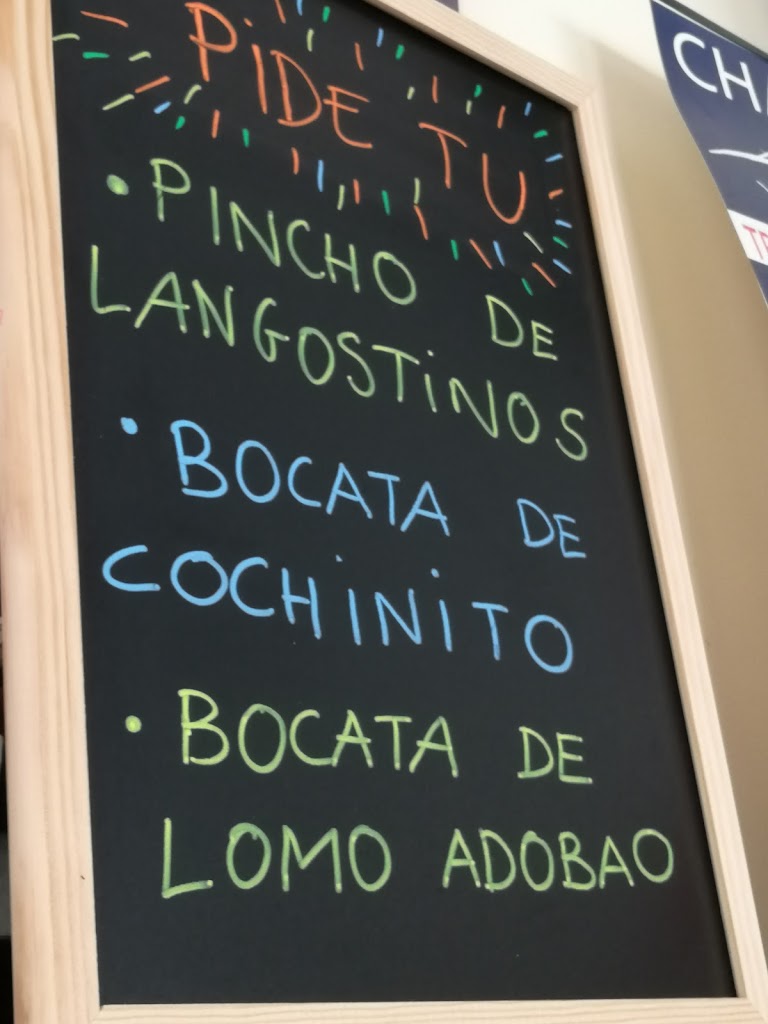 PiDE TU
• PINCHO DE
LANGOSTiNOS
• BOCATA DE
COCHiNiTO
• BOCATA DE
LOMO ADOBAO